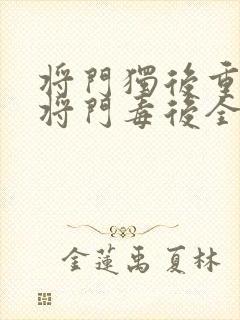 將門獨後重
將門毒後全
金蓮禹 夏林